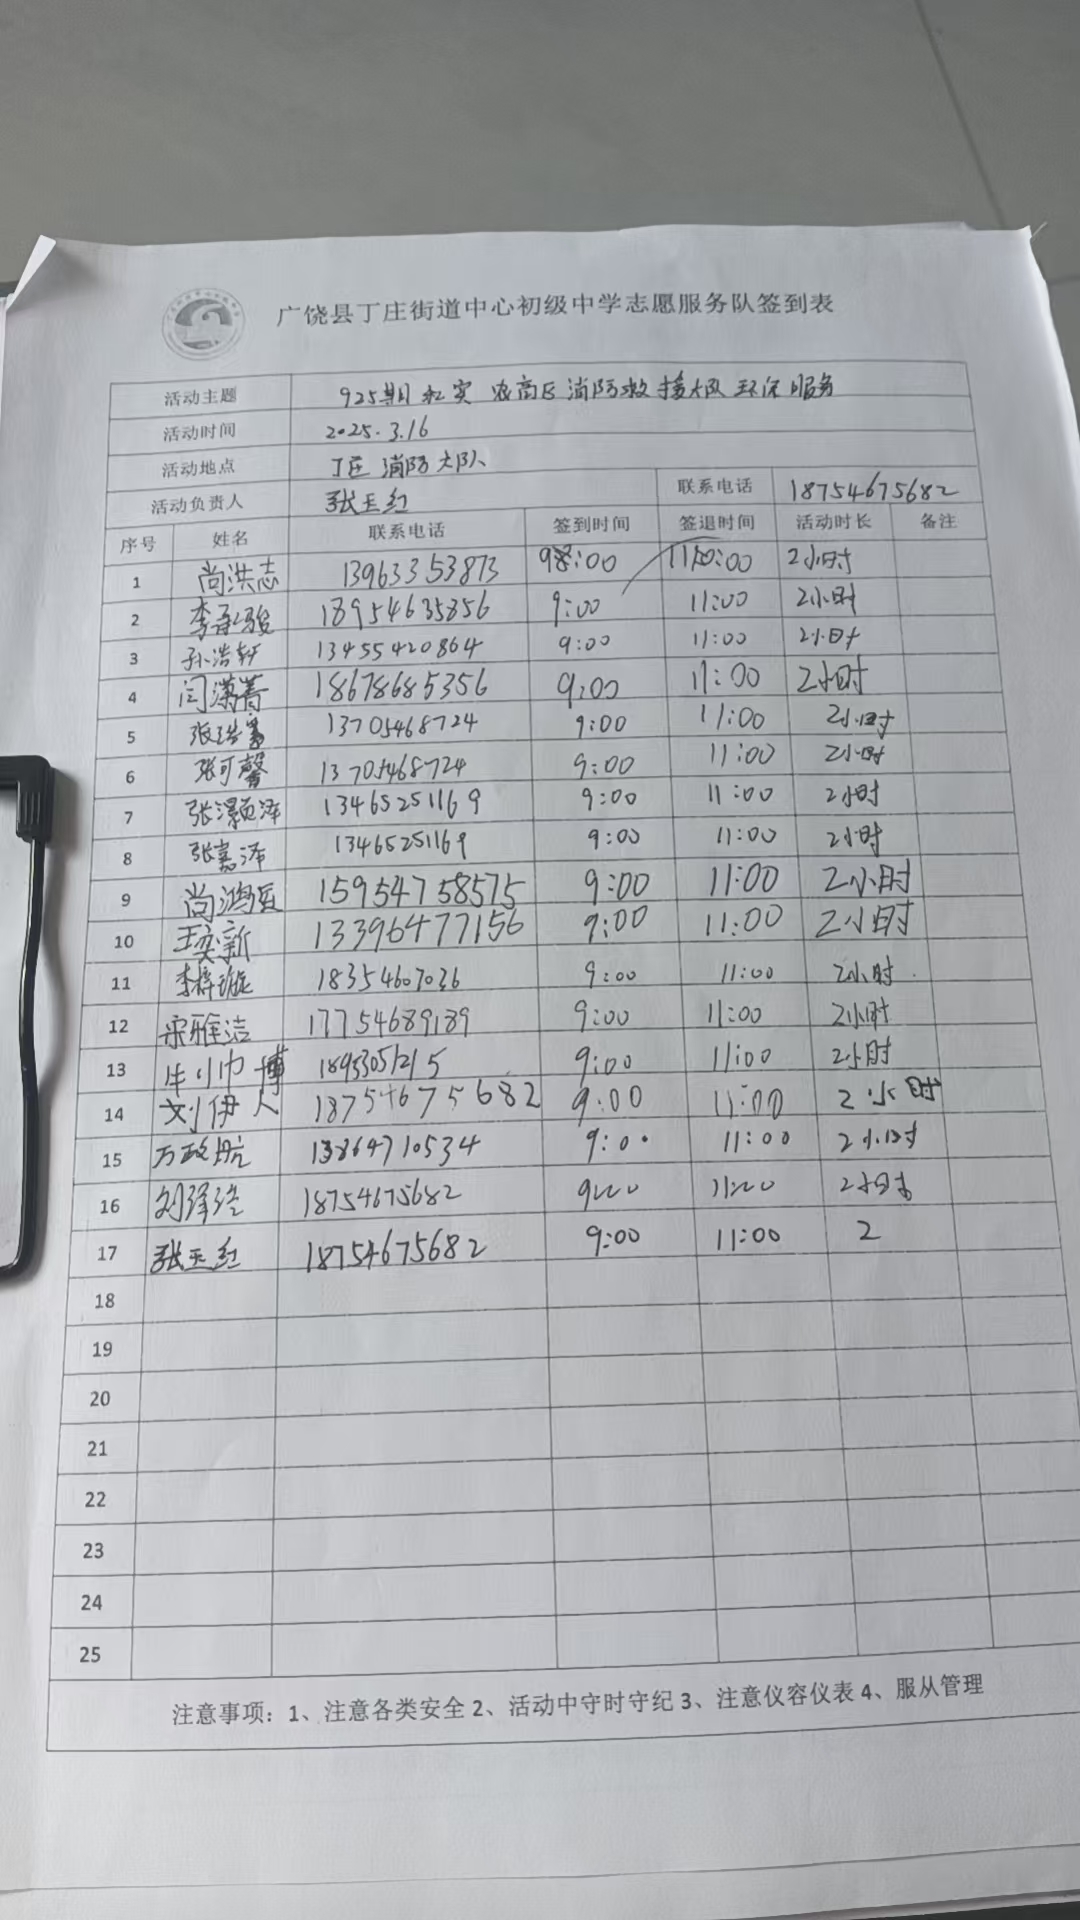 广饶县丁庄街道中心初级中学志愿服务队签到表
活动主题 925期 红实 农高区消防救援大队环保服务
活动时间 2025.3.16
活动地点 丁庄消防大队
活动负责人 张玉红 联系电话 18754675682
序号 姓名 联系电话 签到时间 签退时间 活动时长 备注
1 尚洪志 13963353873 9:00 11:00 2小时
2 李 骏 18954635856 9:00 11:00 2小时
3 孙浩轩 13455420864 9:00 11:00 2小时
4 闫潇菁 18678685356 9:00 11:00 2小时
5 张 13705468724 9:00 11:00 2小时
6 张可馨 13705468724 9:00 11:00 2小时
7 张灏泽 13465251169 9:00 11:00 2小时
8 张嘉泽 13465251169 9:00 11:00 2小时
9 尚鸿辰 15954758575 9:00 11:00 2小时
10 王奕新 13396477156 9:00 11:00 2小时
11 李梓璇 18354607036 9:00 11:00 2小时
12 宋雅洁 17754689189 9:00 11:00 2小时
13 博 18953051215 9:00 11:00 2小时
14 刘伊人 18754675682 9:00 11:00 2小时
15 万政航 13864710534 9:00 11:00 2小时
16 刘泽 18754675682 9:00 11:00 2小时
17 张玉红 18754675682 9:00 11:00 2
18
19
20
21
22
23
24
25
注意事项：1、注意各类安全 2、活动中守时守纪 3、注意仪容仪表 4、服从管理